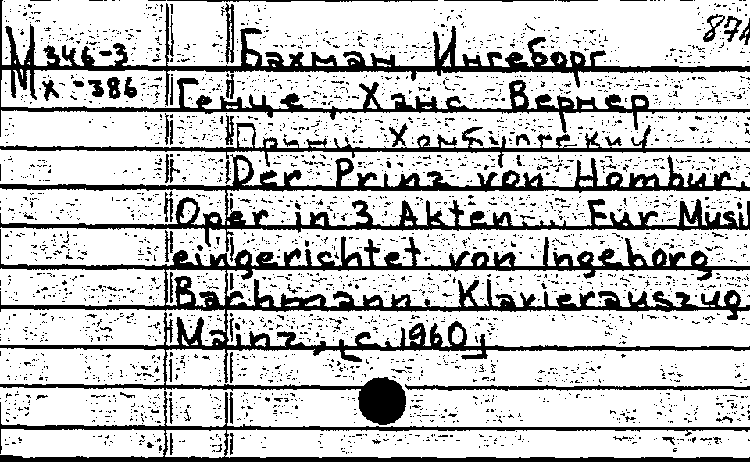 871
М 346-3
X-386
Бахман, Ингеборг
Генце, Ханс Вернер
Принц Хомбургский
Der Prinz von Hombur.
Oper in 3 Akten... Fur Musik
eingerichtet von Ingeborg
Bachmann. Klavierauszug
Mainz, [c. 1960]